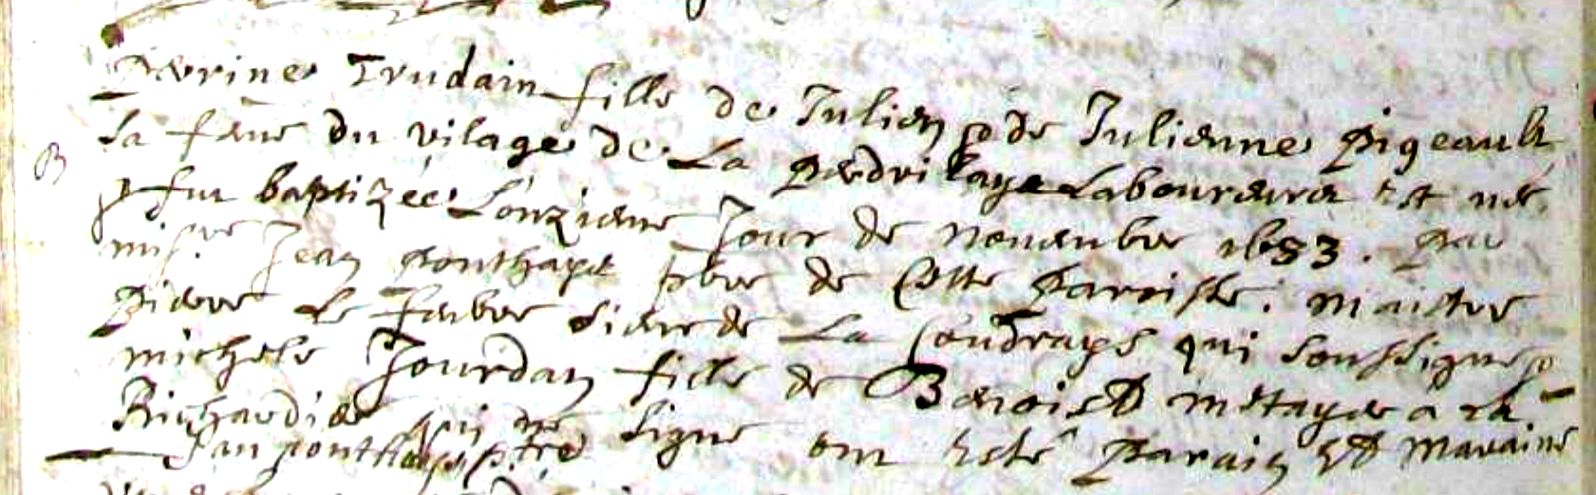 Perrine Trudain fille de Julien & de Julienne Pigeault
sa feme du vilage de La Perdrilaye Laboureurs est née
B
& fut baptizée L'onzieme Jour de novembre 1683. par
mis.re Jean ponthaye pbre de Cette Paroisse. maistre
Pierre Le febvre sieur de La Coudraye qui soussigne &
michele Jourdan fille de Benoist metayer a la
Richardiere qui ne signe ont esté Parain Et Maraine
Jan ponthaye ptre